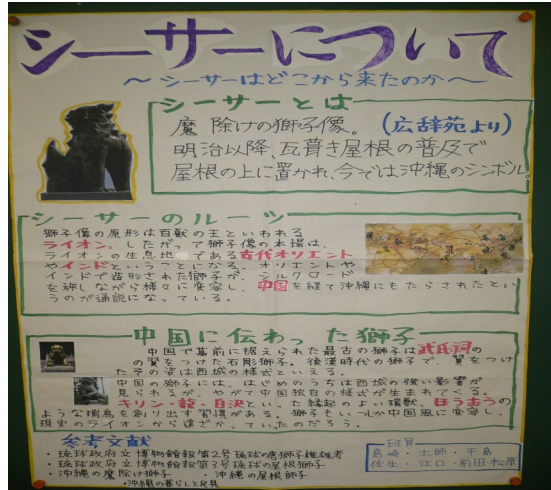 シーサーについて
〜シーサーはどこから来たのか〜
シーサーとは
魔除けの獅子像。(広辞苑より)
明治以降、瓦葺き屋根の普及で
屋根の上に置かれ、今では沖縄のシンボル。
シーサーのルーツ
獅子像の原形は百獣の王といわれる
ライオン。したがって獅子像の本場は、
ライオンの生息地である古代オリエント
やインドということになる。オリエントや
インドで造形された獅子が、シルクロード
を旅しながら様々に変容し、中国を経て沖縄にもたらされたとい
うのが通説になっている。
中国に伝わった獅子
中国で墓前に据えられた最古の獅子は武氏祠の
の翼をつけた石彫獅子。後漢時代の獅子で、翼をつけ
たその姿は西域の様式といえる。
中国の獅子には、はじめのうちは西域の強い影響が
見られるが、やがて中国独自の様式が生まれてくる。
キリン・龍・といった縁起のよい瑞獣、ほうおうの
ような瑞鳥を創り出す習慣がある。獅子もいつしか中国風に変容し、
現実のライオンから遠ざかっていったのだろう。
参考文献
・琉球政府立博物館館報第2号 琉球の唐獅子
・琉球政府立博物館館報第3号 琉球の屋根獅子
・沖縄の魔除け獅子 ・沖縄の屋根獅子
・沖縄の暮らしと民具
班員
島崎・土師・
佐生・江口・前田・松原